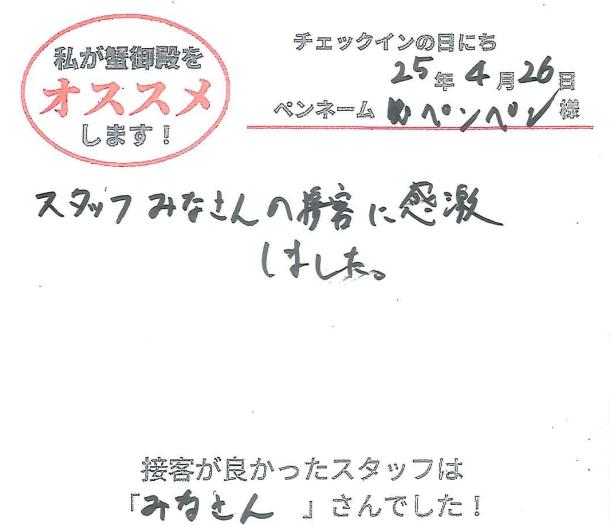 私が蟹御殿を
オススメ
します！
チェックインの日にち
25年4月26日
ペンネーム ペンペン 様
スタッフみなさんの接客に感激
しました。
接客が良かったスタッフは
「みなさん 」さんでした！